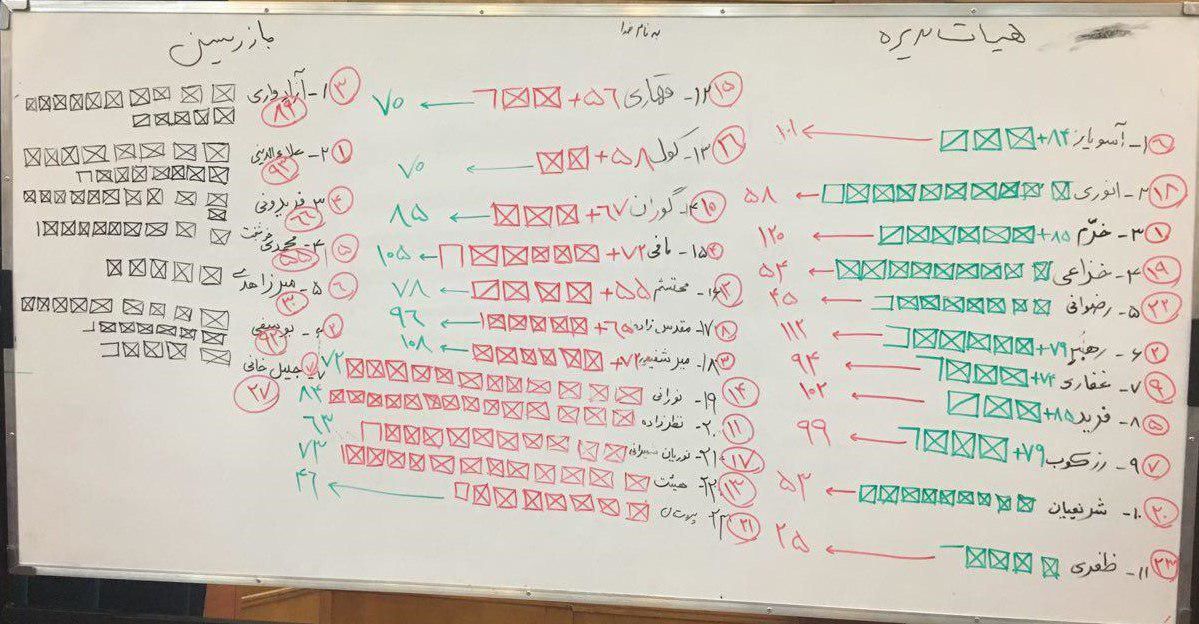 به نام خدا
هیات مدیره
بازرسین
۱- آسوپار +۸۴ ۱۰۱
۲- انوری ۵۸ ۱۸
۳- خرّم +۸۵ ۱۲۰ ۱
۴- خزاعی ۵۴ ۱۹
۵- رضوانی ۴۵ ۲۲
۶- رهبر +۷۹ ۱۱۲ ۲
۷- غفاری +۷۴ ۹۴ ۹
۸- فرید +۸۵ ۱۰۲ ۵
۹- زرکوب +۷۹ ۹۹ ۷
۱۰- شرنعیان ۵۳ ۲۰
۱۱- ظفری ۲۵ ۲۳
۱۲- قهاری +۵۶ ۷۰ ۱۵
۱۳- کول +۵۸ ۷۰
۱۴- گوران +۶۷ ۸۵ ۱۰
۱۵- مافی +۷۲ ۱۰۵ ۴
۱۶- محتشم +۵۵ ۷۸
۱۷- مقدس زاده +۶۵ ۹۶ ۸
۱۸- میرشفیعی +۷۲ ۱۰۸ ۳
۱۹- نورانی ۷۲ ۱۴
۲۰- نظرزاده ۸۴ ۱۱
۲۱- نوریان ۶۳ ۱۷
۲۲- هیئت ۷۳ ۱۳
۲۳- ۴۶ ۲۱
۱- آزادواری ۸۹ ۳
۲- علاءالدینی ۹۳ ۱
۳- فریدونی ۶۶ ۴
۴- محمدی ۵۵ ۵
۵- میرزاهدی ۳۰ ۶
۶- یوسفی ۹۲ ۲
۷- جلیل خانی ۲۷ ۷